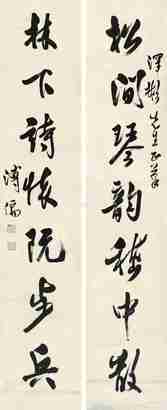 澤彬先生正篆
松澗琴韻嵇中散
林下詩懷阮步兵
溥儒